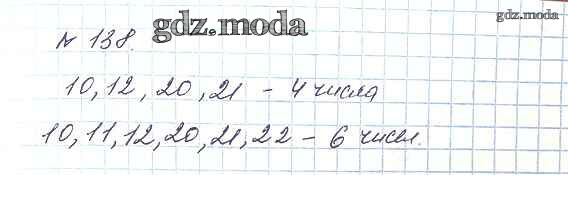 gdz.moda
gdz.moda
№ 138.
10, 12, 20, 21 - 4 числа
10, 11, 12, 20, 21, 22 - 6 чисел.